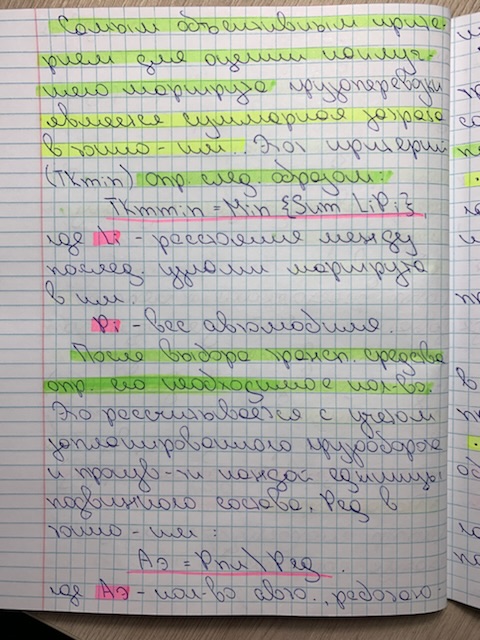 Самым объективным крите-
рием для оценки наилуч-
шего маршрута грузоперевозки
является суммарная затрата
в тонно-км. Этот критерий
(TKmin) опр. след. образом:
TKmmin = Min {Sum LiPi}
где Li - расстояния между
послед. узлами маршрута
в км.
Pi - вес автомобиля.
После выбора трансп. средства
опр. его необходимое кол-во.
Это рассчитывается с учетом
запланированного грузооборота
и произв-ти каждой единицы
подвижного состава. Ред в
тонно-км:
Аэ = Рпл \ Ред.
где Аэ - кол-во авто.,